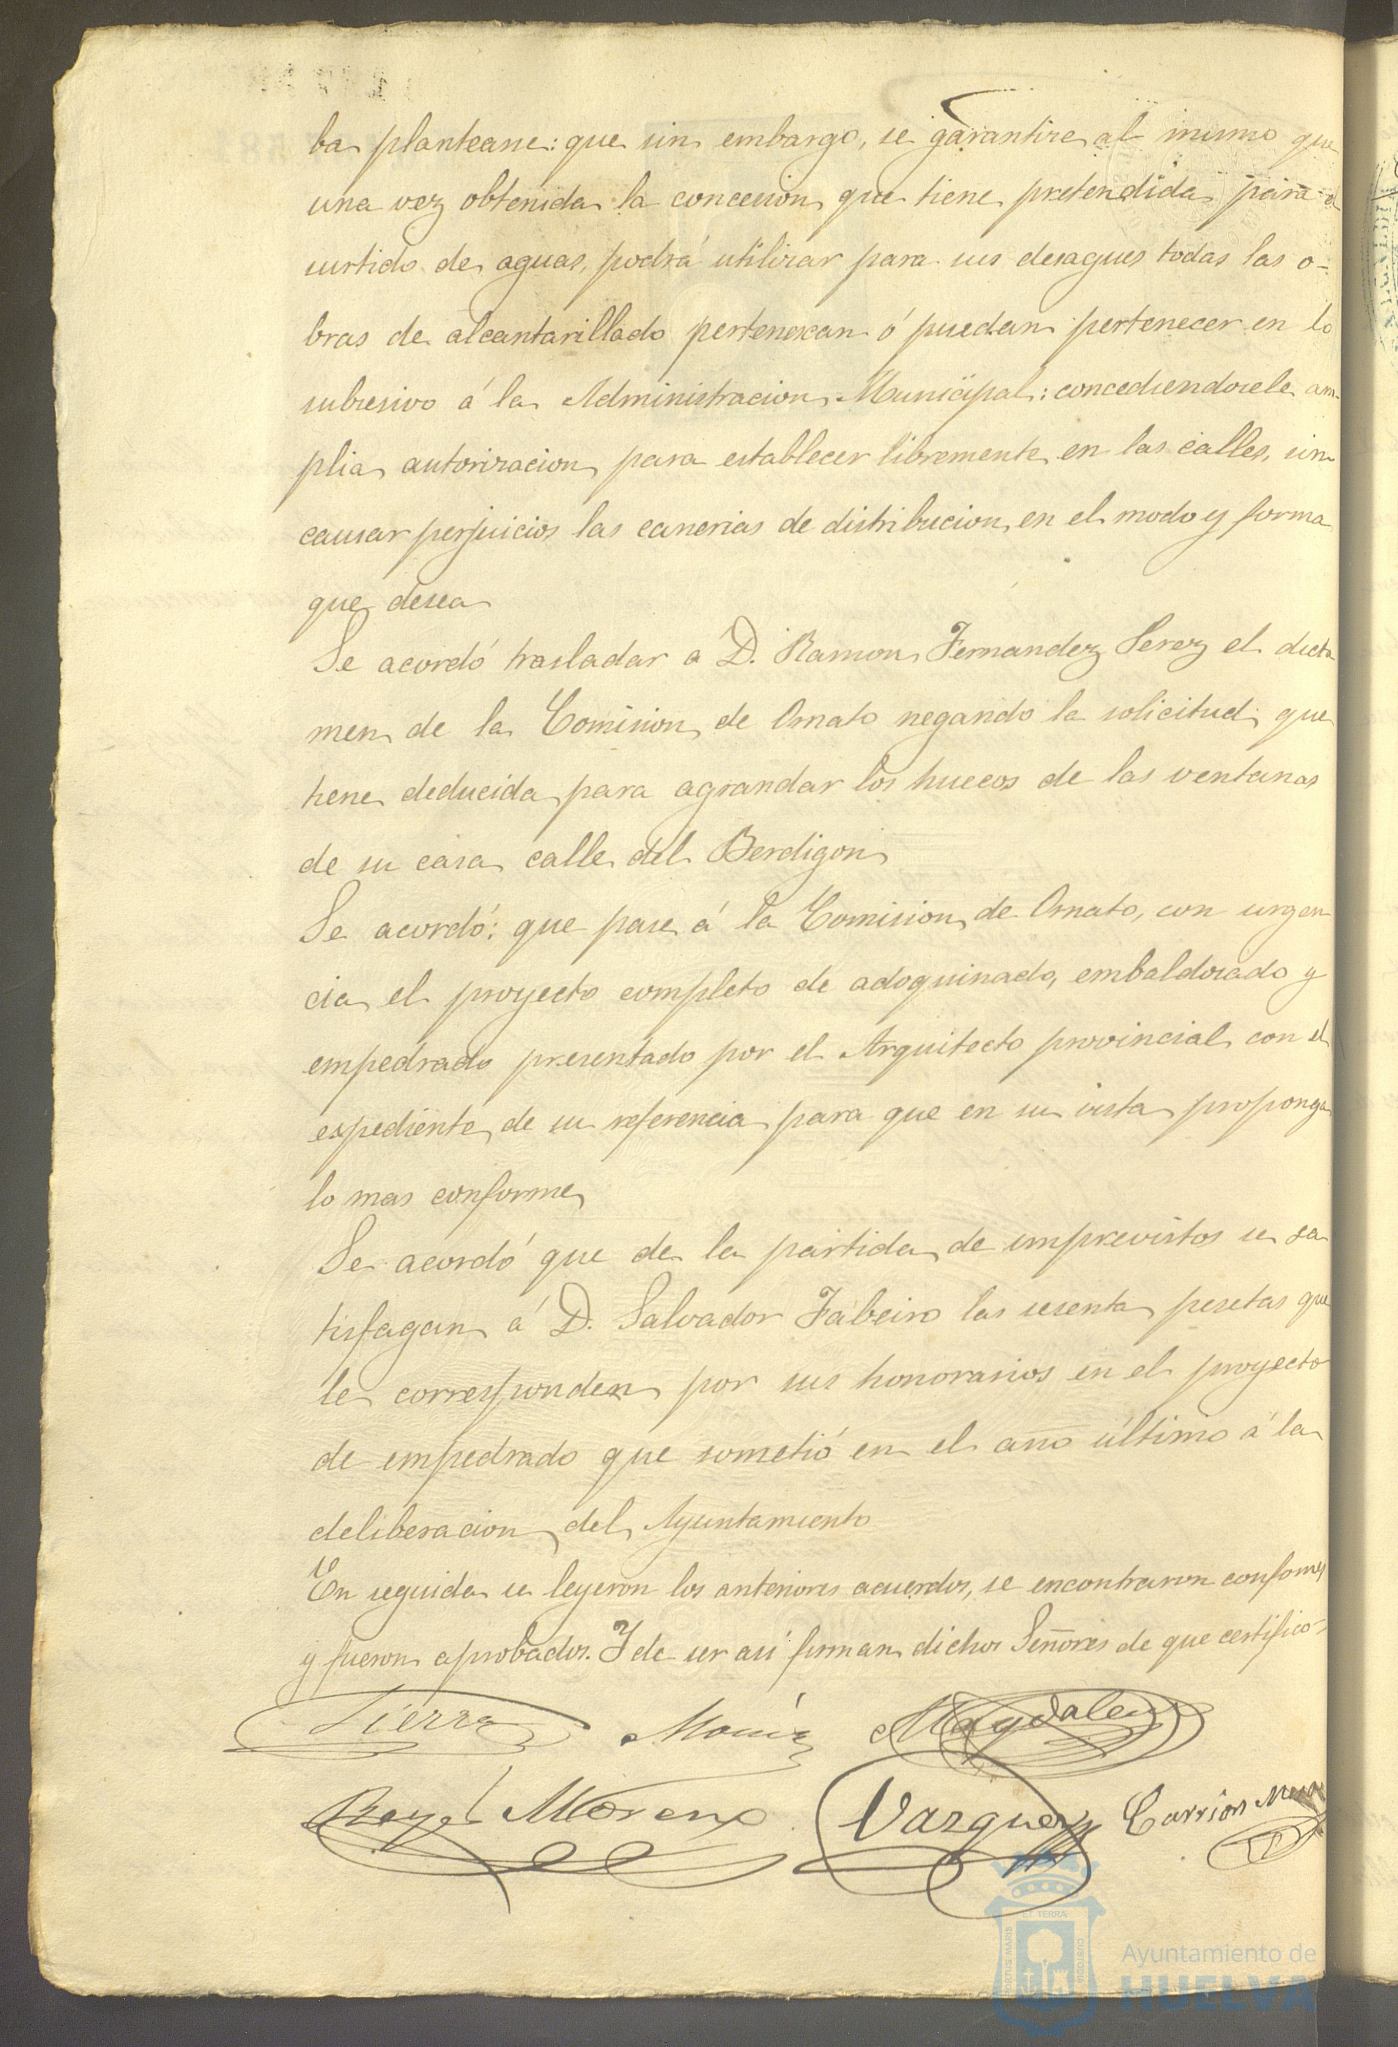 ba plantearse: que sin embargo, se garantize al mismo que
una vez obtenida la concesion que tiene pretendida para el
surtido de aguas, podrá utilizar para sus desagues todas las o-
bras de alcantarillado pertenezcan ó puedan pertenecer en lo
subcesivo á la Administracion Municipal: concediendosele am-
plia autorizacion para establecer libremente en las calles, sin
causar perjuicios las canerias de distribucion en el modo y forma
que desea
Se acordó trasladar á D. Ramon Fernandez Perez el dicta
men de la Comision de Ornato negando la solicitud que
tiene deducida para agrandar los huecos de las ventanas
de su casa calle del Berdigon
Se acordó: que pase á la Comision de Ornato, con urgen
cia el proyecto completo de adoquinado, embaldosado y
empedrado presentado por el Arquitecto provincial con el
expediente de su referencia para que en su vista proponga
lo mas conforme
Se acordó que de la partida de imprevistos se sa
tisfagan á D. Salvador Fabeiro las sesenta pesetas que
le corresponden por sus honorarios en el proyecto
de empedrado que sometió en el año último á la
deliberacion del Ayuntamiento
En seguida se leyeron los anteriores acuerdos, se encontraron conformes
y fueron aprobados. Y de ser asi firman dichos Señores de que certificó
Tierra Magdalena
Moreno Vazquez Carrion
Ayuntamiento de
HUELVA